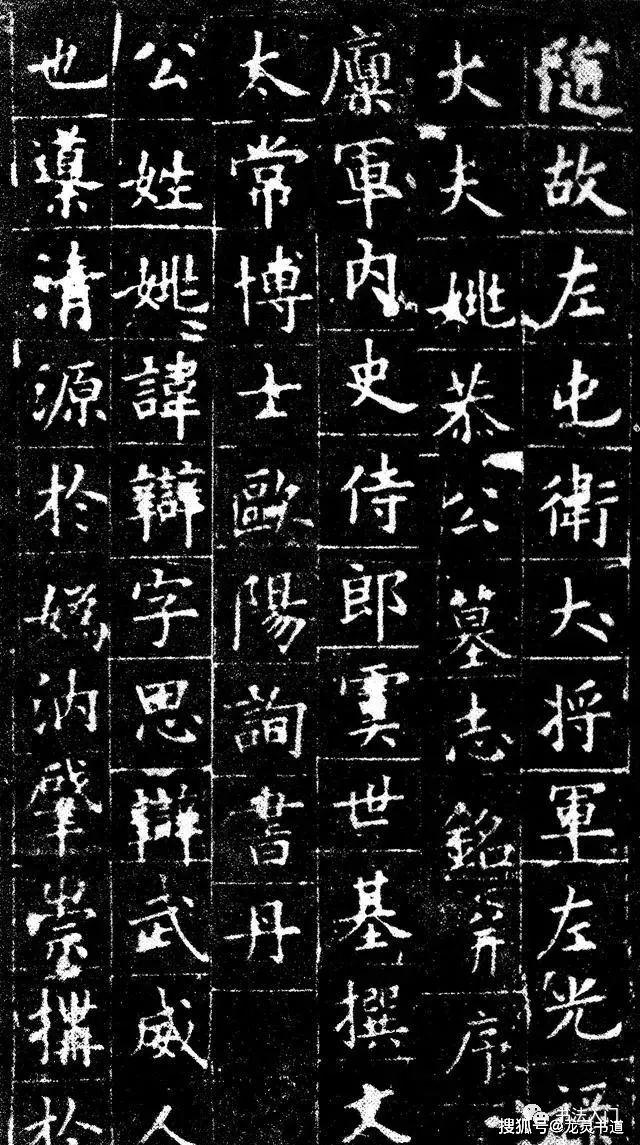 隨故左屯衛大将軍左光
大夫姚恭公墓志銘并序
廩軍內史侍郎虞世基撰文
太常博士歐陽詢書丹
公姓姚諱辯字思辯武威人
也導清源於媯汭肇崇構於
书法入门
搜狐号@龙贡书道